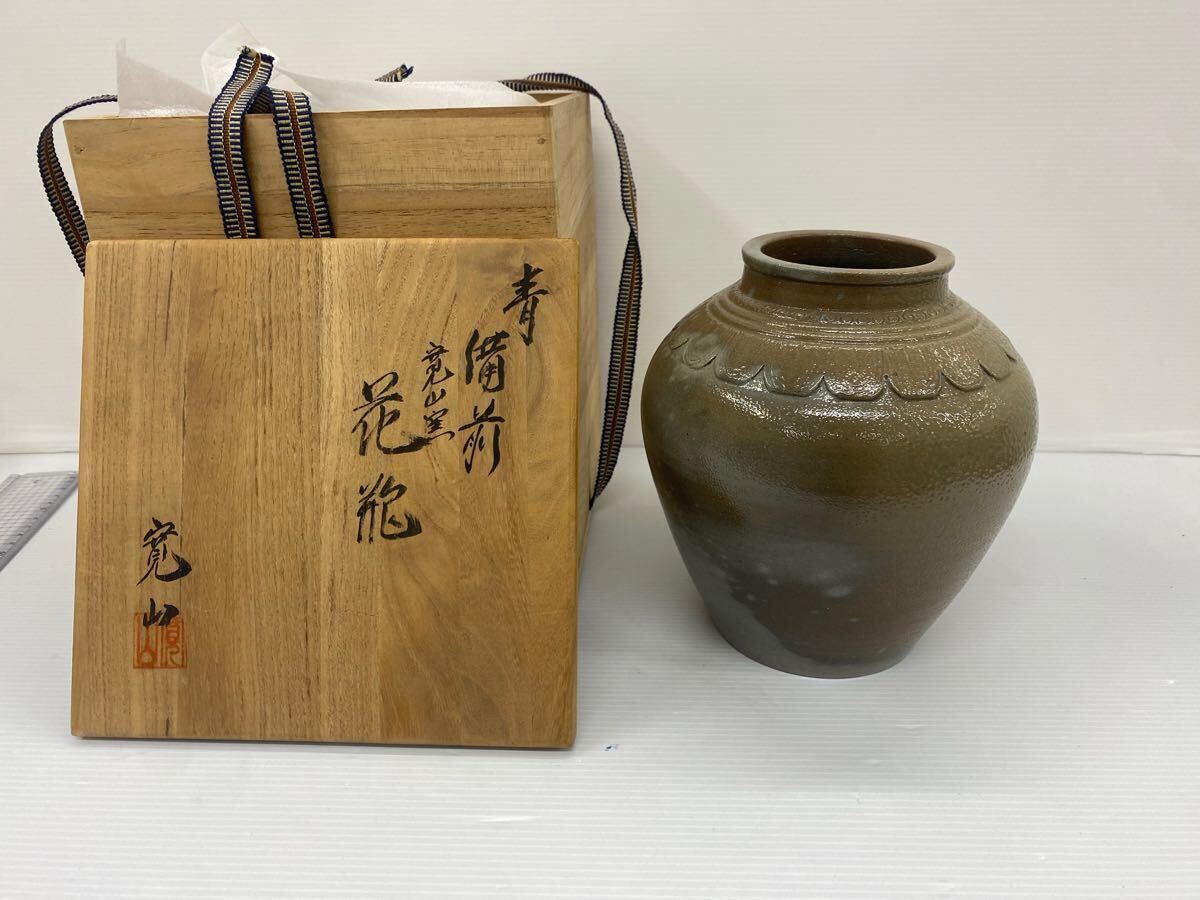 青備前
寛山窯
花瓶
寛山
寛山